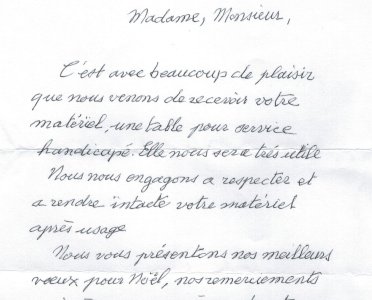 Madame, Monsieur,
C'est avec beaucoup de plaisir
que nous venons de recevoir votre
matériel, une table pour service
handicapé. Elle nous sera très utile
Nous nous engagons a respecter et
a rendre intacte votre matériel
après usage
Nous vous présentons nos meilleurs
voeux pour Noël, nos remerciements